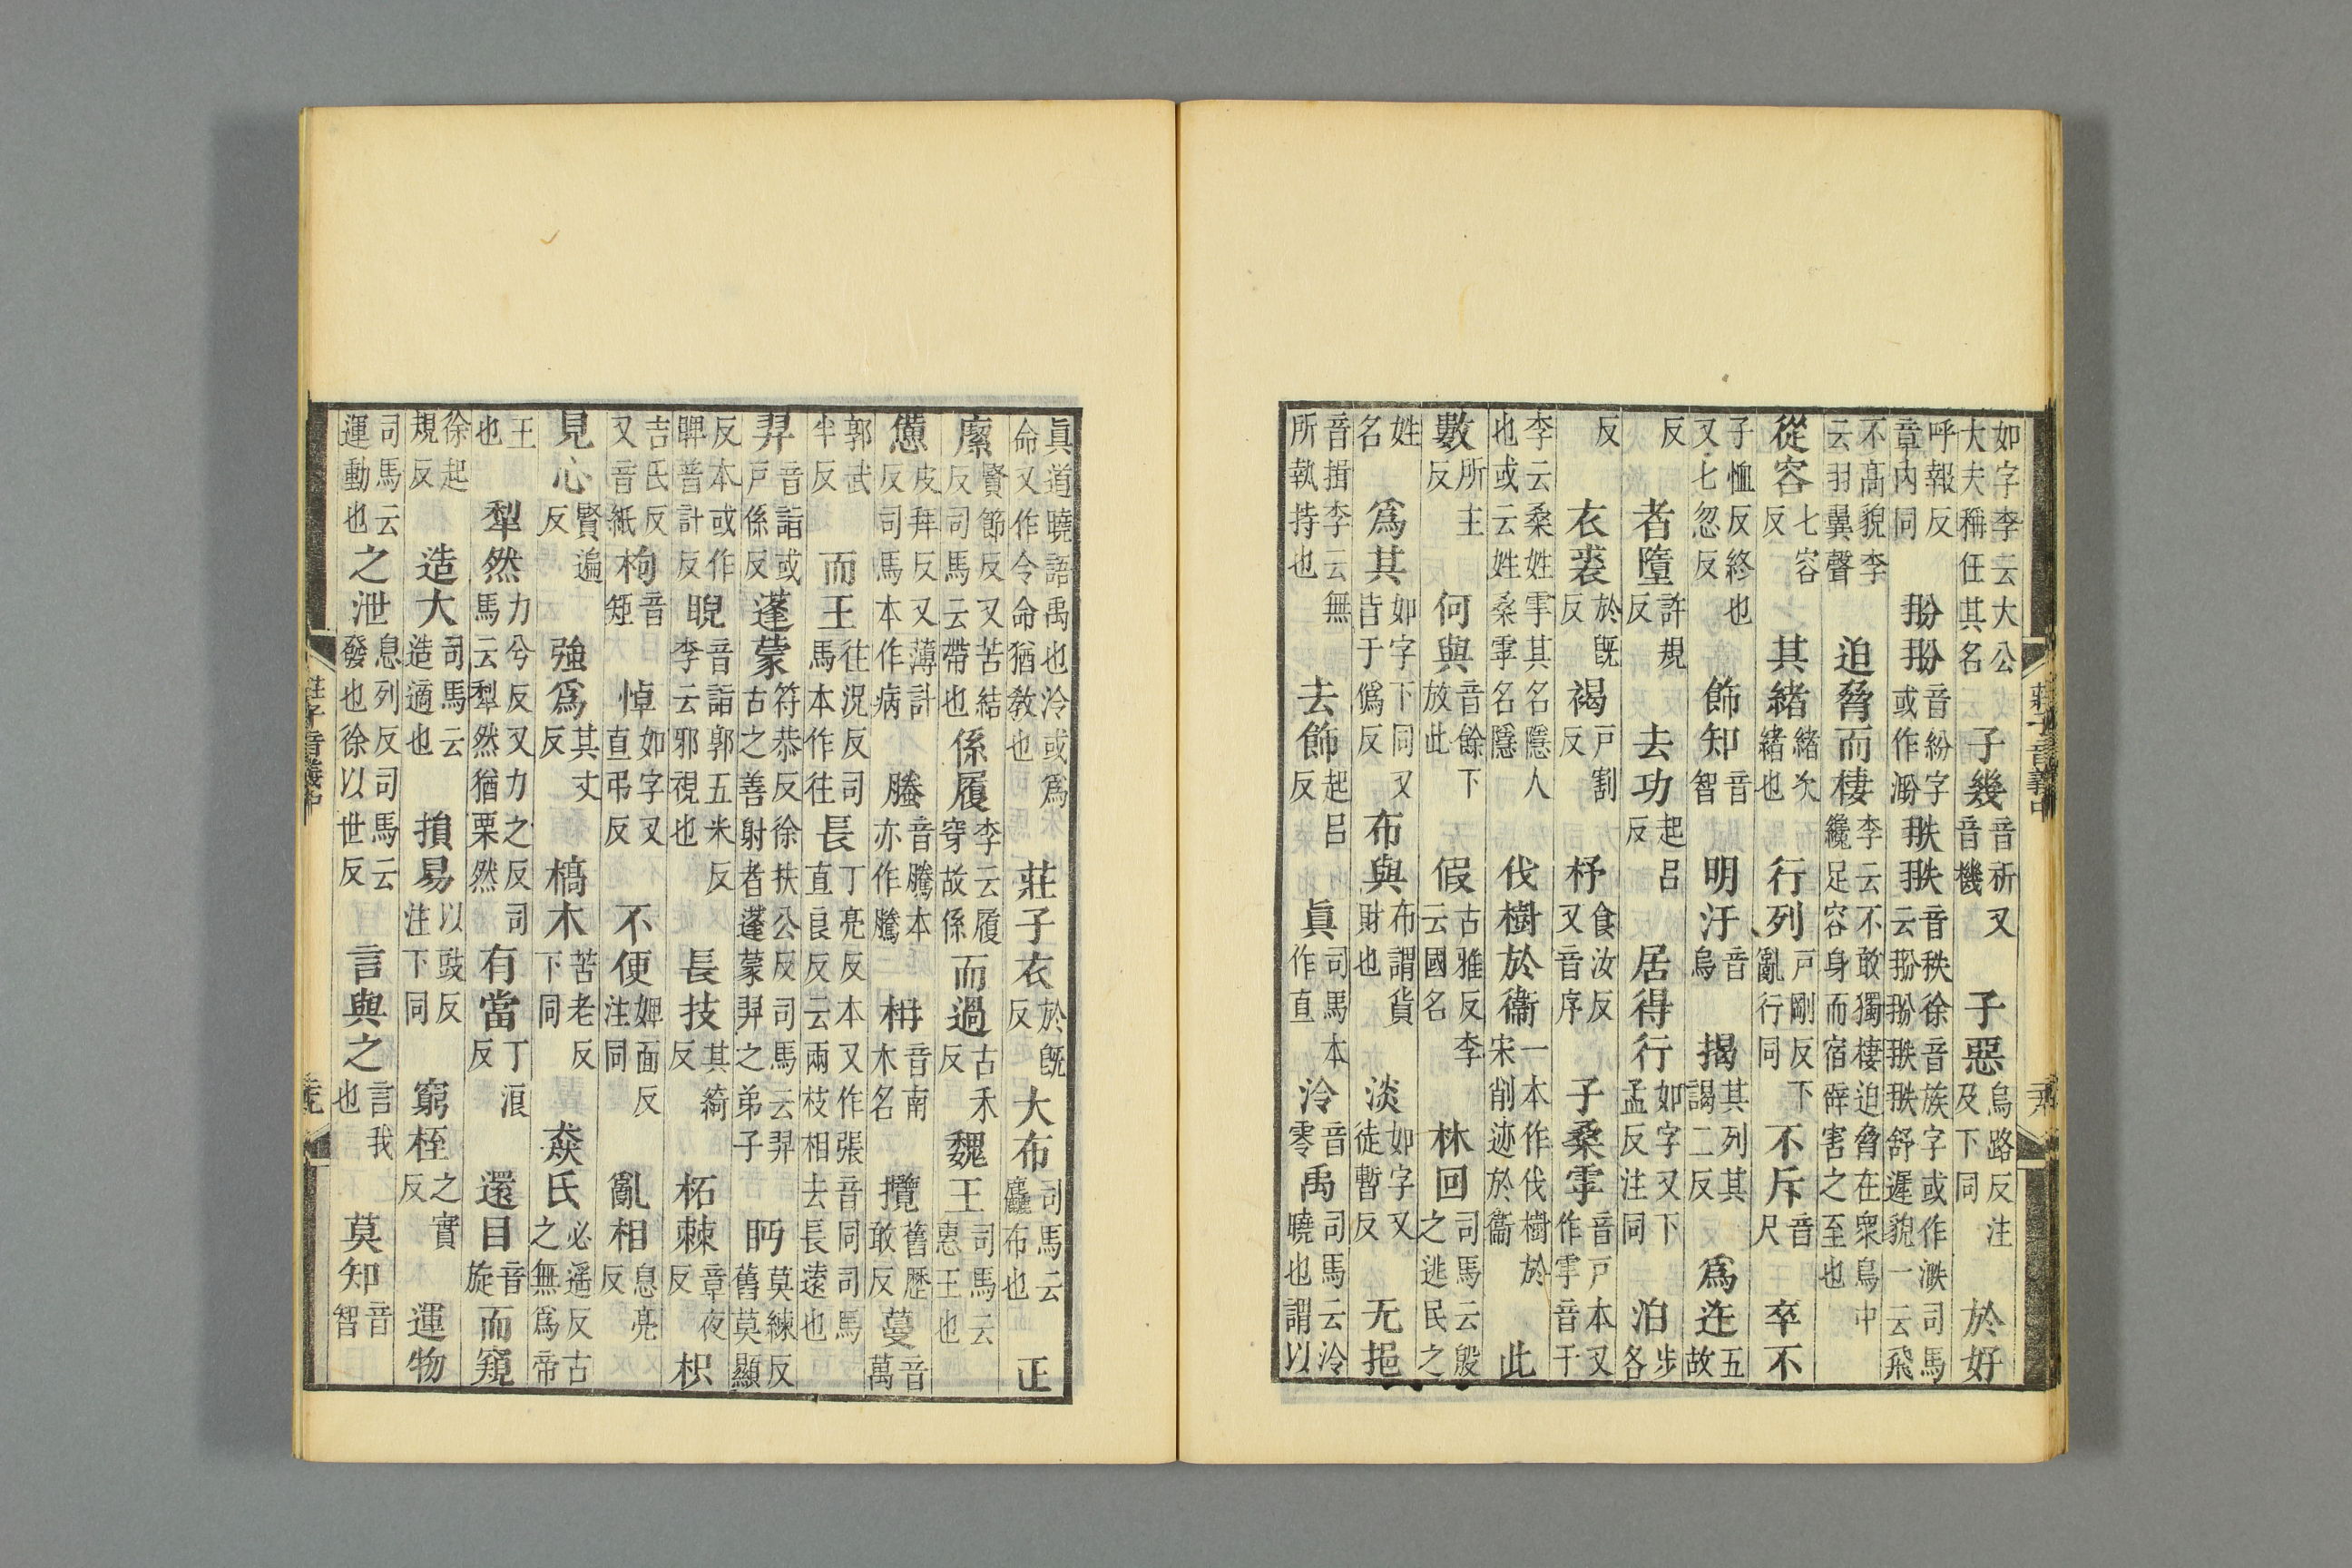 如字李云大公大夫稱任其名 子幾音祈又音機 子惡烏路反注及下同 於好
呼報反章内同 翂翂音紛字或作溜 翐翐音秩徐音族字或作溜司馬云翂翂翐翐舒遲貌一云飛
不高貌李云羽翼聲 迫脅而棲李云不敢獨棲迫脅在衆鳥中纔足容身而宿辟害之至也
從容七容反 其緒緒次緒也 行列戶剛反下亂行同 不斥音尺 卒不
子恤反終也又七忽反 飾知音智 明汙音烏 揭其列其謁二反 爲迕五故
反 者隳許規反 去功起呂反 居得行如字又下孟反注同 泊步各
反 衣裘於旣反 褐戶割反 杼食汝反又音序 子桑雽音戶本又作雽音于
李云桑姓雽其名隱人也或云姓桑雽名隱 伐樹於衞一本作伐樹於宋削迹於衞 此
數所主反 何與音餘下放此 假古雅反李云國名 林回司馬云殷之逃民之
姓名 爲其如字下同又皆于僞反 布與布謂貨財也 淡如字又徒暫反 无挹
音揖李云無所執持也 去飾起呂反 眞司馬本作直 泠音零 禹司馬云泠曉也謂以
眞道曉語禹也泠或爲命又作令命猶教也 莊子衣於旣反 大布司馬云麤布也 正
緳賢節反又苦結反司馬云帶也 係履李云履穿故係 而過古禾反 魏王司馬云惠王也
憊皮拜反又薄計反司馬本作病 螣音騰本亦作騰 枏音南木名 攬舊歷敢反 蔓音萬
郭武半反 而王往況反司馬本作往 長丁亮反本又作張音同司馬直良反云兩枝相去長遠也
羿音詣或戶係反 蓬蒙符恭反徐扶公反司馬云羿古之善射者蓬蒙羿之弟子 眄莫練反舊莫顯
反本或作睥普計反 睨音詣郭五米反李云邪視也 長技其綺反 柘棘章夜反 枳
吉氏反又音紙 枸音矩 悼如字又直弔反 不便婢面反注同 亂相息亮反
見心賢遍反 強爲其丈反 槁木苦老反下同 猋氏必遥反古之無爲帝
王也 犁然力兮反又力之反司馬云犁然猶栗然 有當丁浪反 還目音旋 而窺
徐起規反 造大司馬云造適也 損易以豉反注下同 窮桎之實反 運物
司馬云運動也 之泄息列反司馬云發也徐以世反 言與之言我也 莫知音智
莊子音義中
莊子音義中